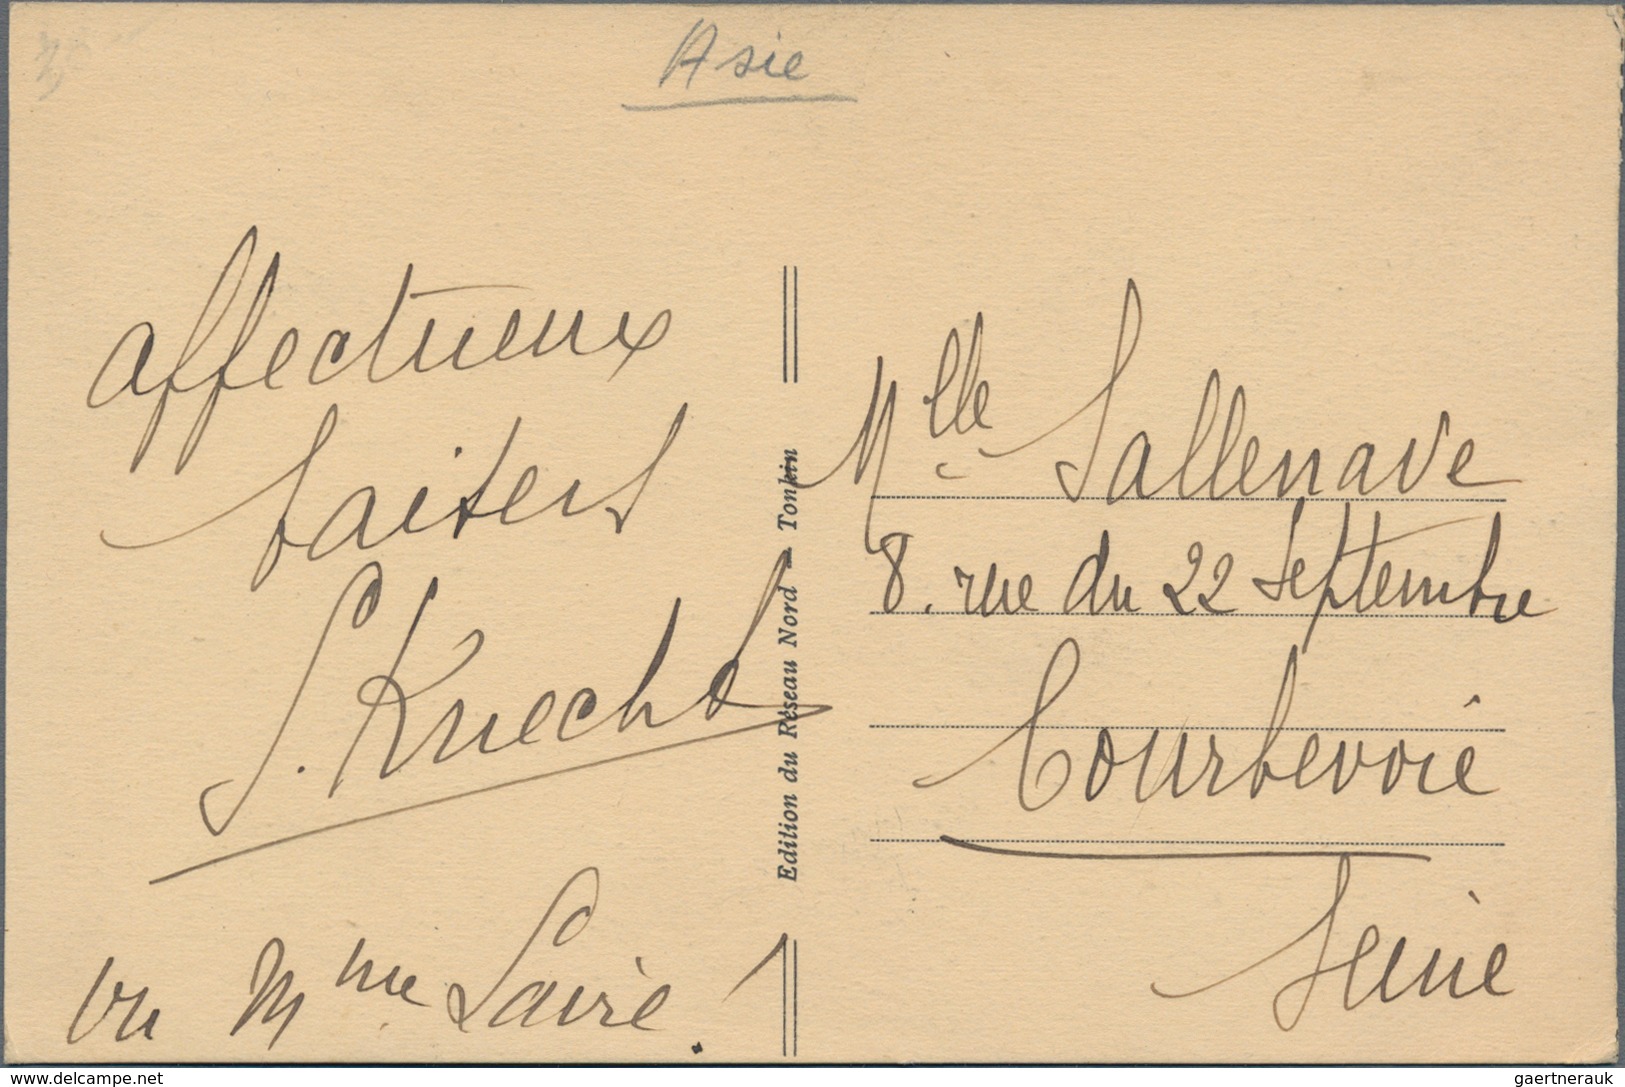 Asie
affectueux
baisers
S. Knecht
vu Mme Laire!
Edition du Réseau Nord — Tonkin
Mlle Sallenave
8. rue du 22 Septembre
Courbevoie
Seine
www.delcampe.net
gaertnerauk